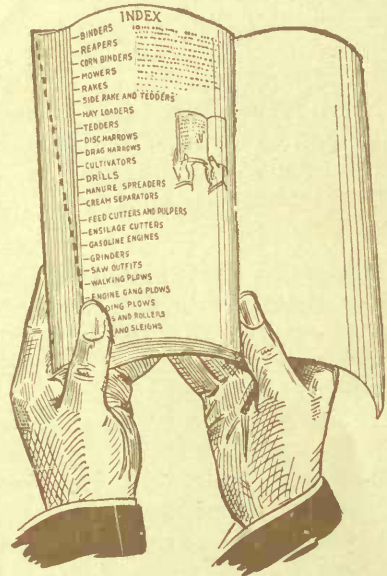 INDEX
BINDERS
REAPERS
CORN BINDERS
MOWERS
RAKES
SIDE RAKE AND TEDDERS
HAY LOADERS
TEDDERS
DISC HARROWS
DRAG HARROWS
CULTIVATORS
DRILLS
MANURE SPREADERS
CREAM SEPARATORS
FEED CUTTERS AND PULPERS
ENSILAGE CUTTERS
GASOLINE ENGINES
GRINDERS
SAW OUTFITS
WALKING PLOWS
ENGINE GANG PLOWS
DING PLOWS
S AND ROLLERS
AND SLEIGHS